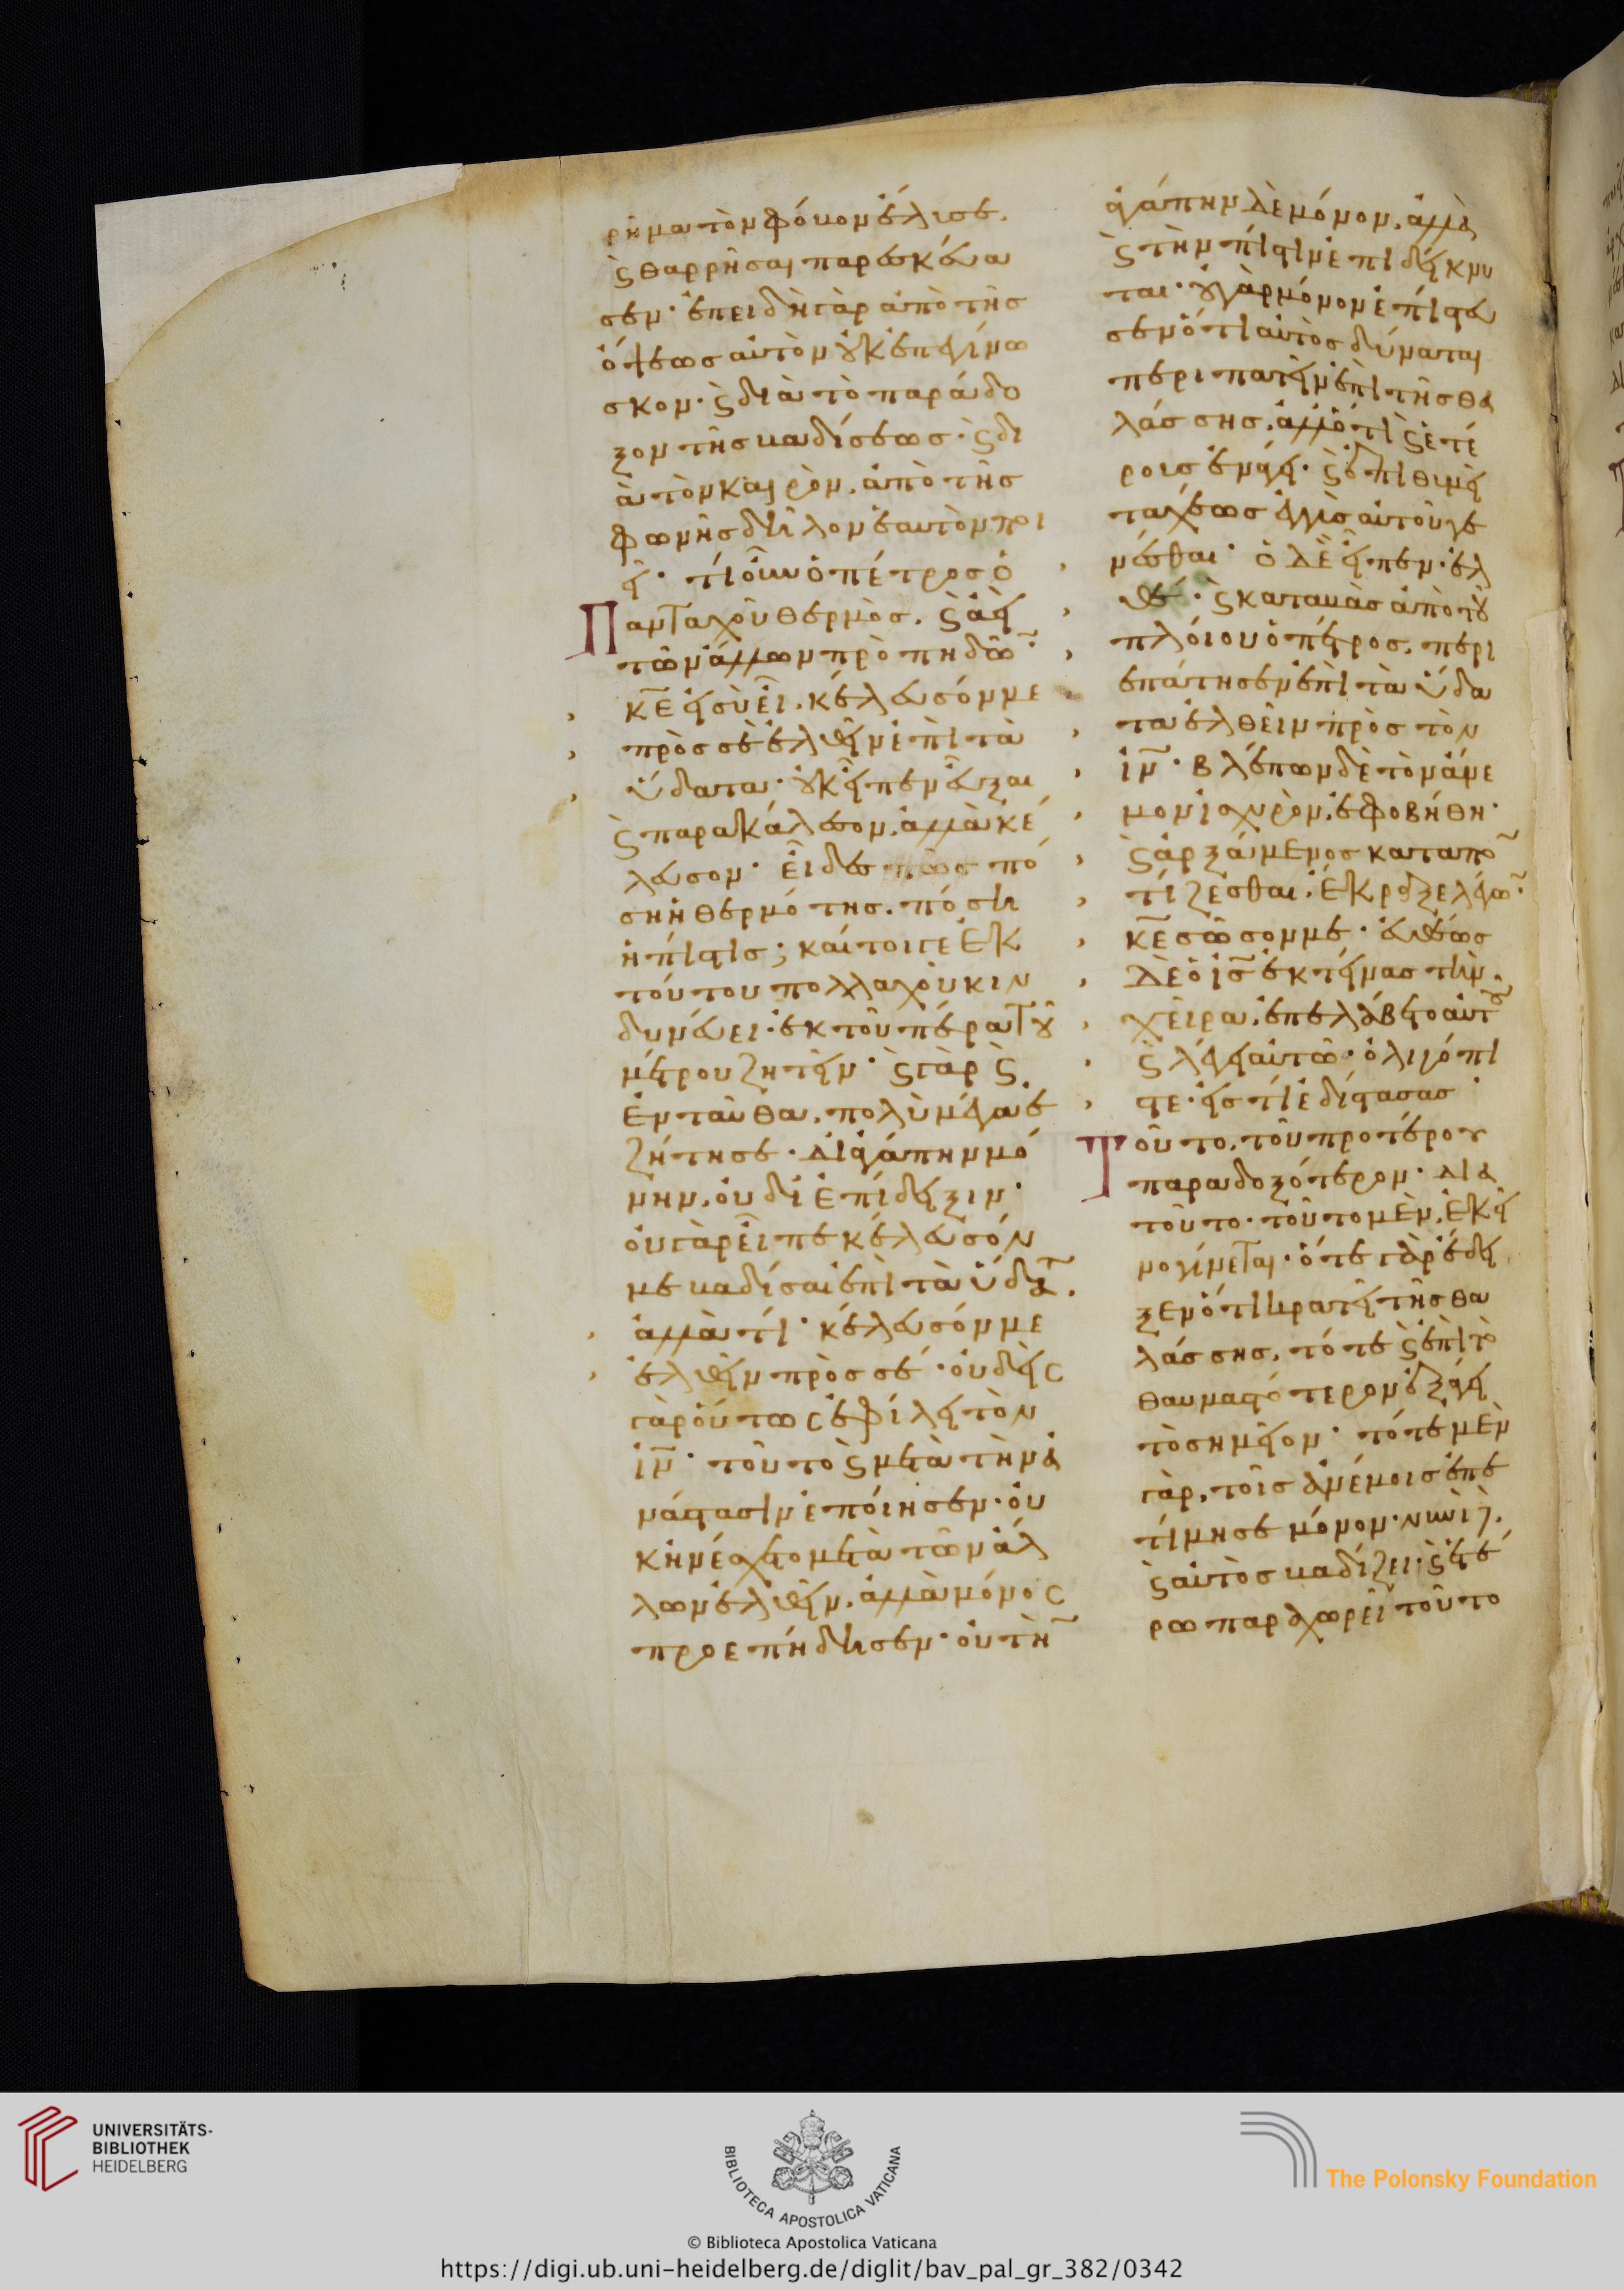 ρῆμα τὸν φόβον ἔλυσε.
ϛ θαρρῆσαι παρεσκεύα
σεν· ἐπειδὴ γὰρ ἀπὸ τῆσ
ὄψεωσ αὐτὸν οὐκ ἐπεγίνω
σκον· ϛ διὰ τὸ παράδο
ξον τῆσ βαδίσεωσ· ϛ δι
ὰ τὸν καιρὸν. ἀπὸ τῆσ
φωνῆσ δῆλον ἑαυτὸν ποι
εῖ· τί οὖν ὁ πέτροσ ὁ
Πανταχοῦ θερμὸσ. ϛ ἀεὶ
τῶν ἄλλων προπηδῶν·
κε εἰ σὺ εἶ. κέλευσόν με
πρὸσ σὲ ἐλθεῖν ἐπὶ τὰ
ὕδατα· οὐκ εἶπεν εὖξαι
ϛ παρακάλεσον. ἀλλὰ κέ
λευσον· εἶδεσ πῶσ πό
ση ἡ θερμότησ. πόση
ἡ πίστισ; καίτοιγε ἐκ
τούτου πολλαχοῦ κιν
δυνεύει· ἐκ τοῦ πέρα τοῦ
μέτρου ζητεῖν· ϛ γὰρ ϛ
ἐνταῦθα. πολὺ μέγα ἐ
ζήτησε. δι ἀγάπην μό
νην. οὐ δι ἐπίδειξιν·
οὐ γὰρ εἶπε κέλευσόν
με βαδίσαι ἐπὶ τὰ ὕδατα.
ἀλλὰ τί· κέλευσόν με
ἐλθεῖν πρὸσ σέ· οὐδεὶσ
γὰρ οὕτωσ ἐφίλει τὸν
ιν· τοῦτο ϛ μετὰ τὴν ἀ
νάστασιν ἐποίησεν· οὐ
κ ἠνέσχετο μετὰ τῶν ἄλ
λων ἐλθεῖν. ἀλλὰ μόνοσ
προεπήδησεν· οὐ τὴν
ἀγάπην δὲ μόνον. ἀλλὰ
ϛ τὴν πίστιν ἐπιδείκνυ
ται· οὐ γὰρ μόνον ἐπίστευ
σεν ὅτι αὐτὸσ δύναται
περιπατεῖν ἐπὶ τῆσ θα
λάσσησ. ἀλλ ὅτι ϛ ἑτέ
ροισ ἐνάγει· ϛ ἐπιθυμεῖ
ταχέωσ ἐγγὺσ αὐτοῦ γε
νέσθαι· ὁ δὲ εἶπεν· ἐλ
θέ· ϛ καταβὰσ ἀπὸ τοῦ
πλοίου ὁ πέτροσ. περι
επάτησεν ἐπὶ τὰ ὕδα
τα ἐλθεῖν πρὸσ τὸν
ιν· βλέπων δὲ τὸν ἄνε
μον ἰσχυρὸν. ἐφοβήθη·
ϛ ἀρξάμενοσ καταπον
τίζεσθαι. ἔκραξε λέγων·
κε σῶσον με· εὐθέωσ
δὲ ὁ ισ ἐκτείνασ τὴν
χεῖρα. ἐπελάβετο αὐτοῦ
ϛ λέγει αὐτῶ· ὀλιγόπι
στε· εἰσ τί ἐδίστασασ·
Τοῦτο. τοῦ προτέρου
παραδοξότερον· διὰ
τοῦτο· τοῦτο μὲν. ἐκεῖ
νο γίνεται· ὅτε γὰρ ἔδει
ξεν ὅτι κρατεῖ τῆσ θα
λάσσησ. τότε ϛ ἐπὶ τὸ
θαυμαστότερον ἐξάγει
τὸ σημεῖον· τότε μὲν
γὰρ. τοῖσ ἀνέμοισ ἐπε
τίμησε μόνον· νυνὶ δὲ.
ϛ αὐτὸσ βαδίζει· ϛ ἑτέ
ρω παραχωρεῖ τοῦτο
UNIVERSITÄTS-
BIBLIOTHEK
HEIDELBERG
BIBLIOTECA APOSTOLICA VATICANA
The Polonsky Foundation
© Biblioteca Apostolica Vaticana
https://digi.ub.uni-heidelberg.de/diglit/bav_pal_gr_382/0342